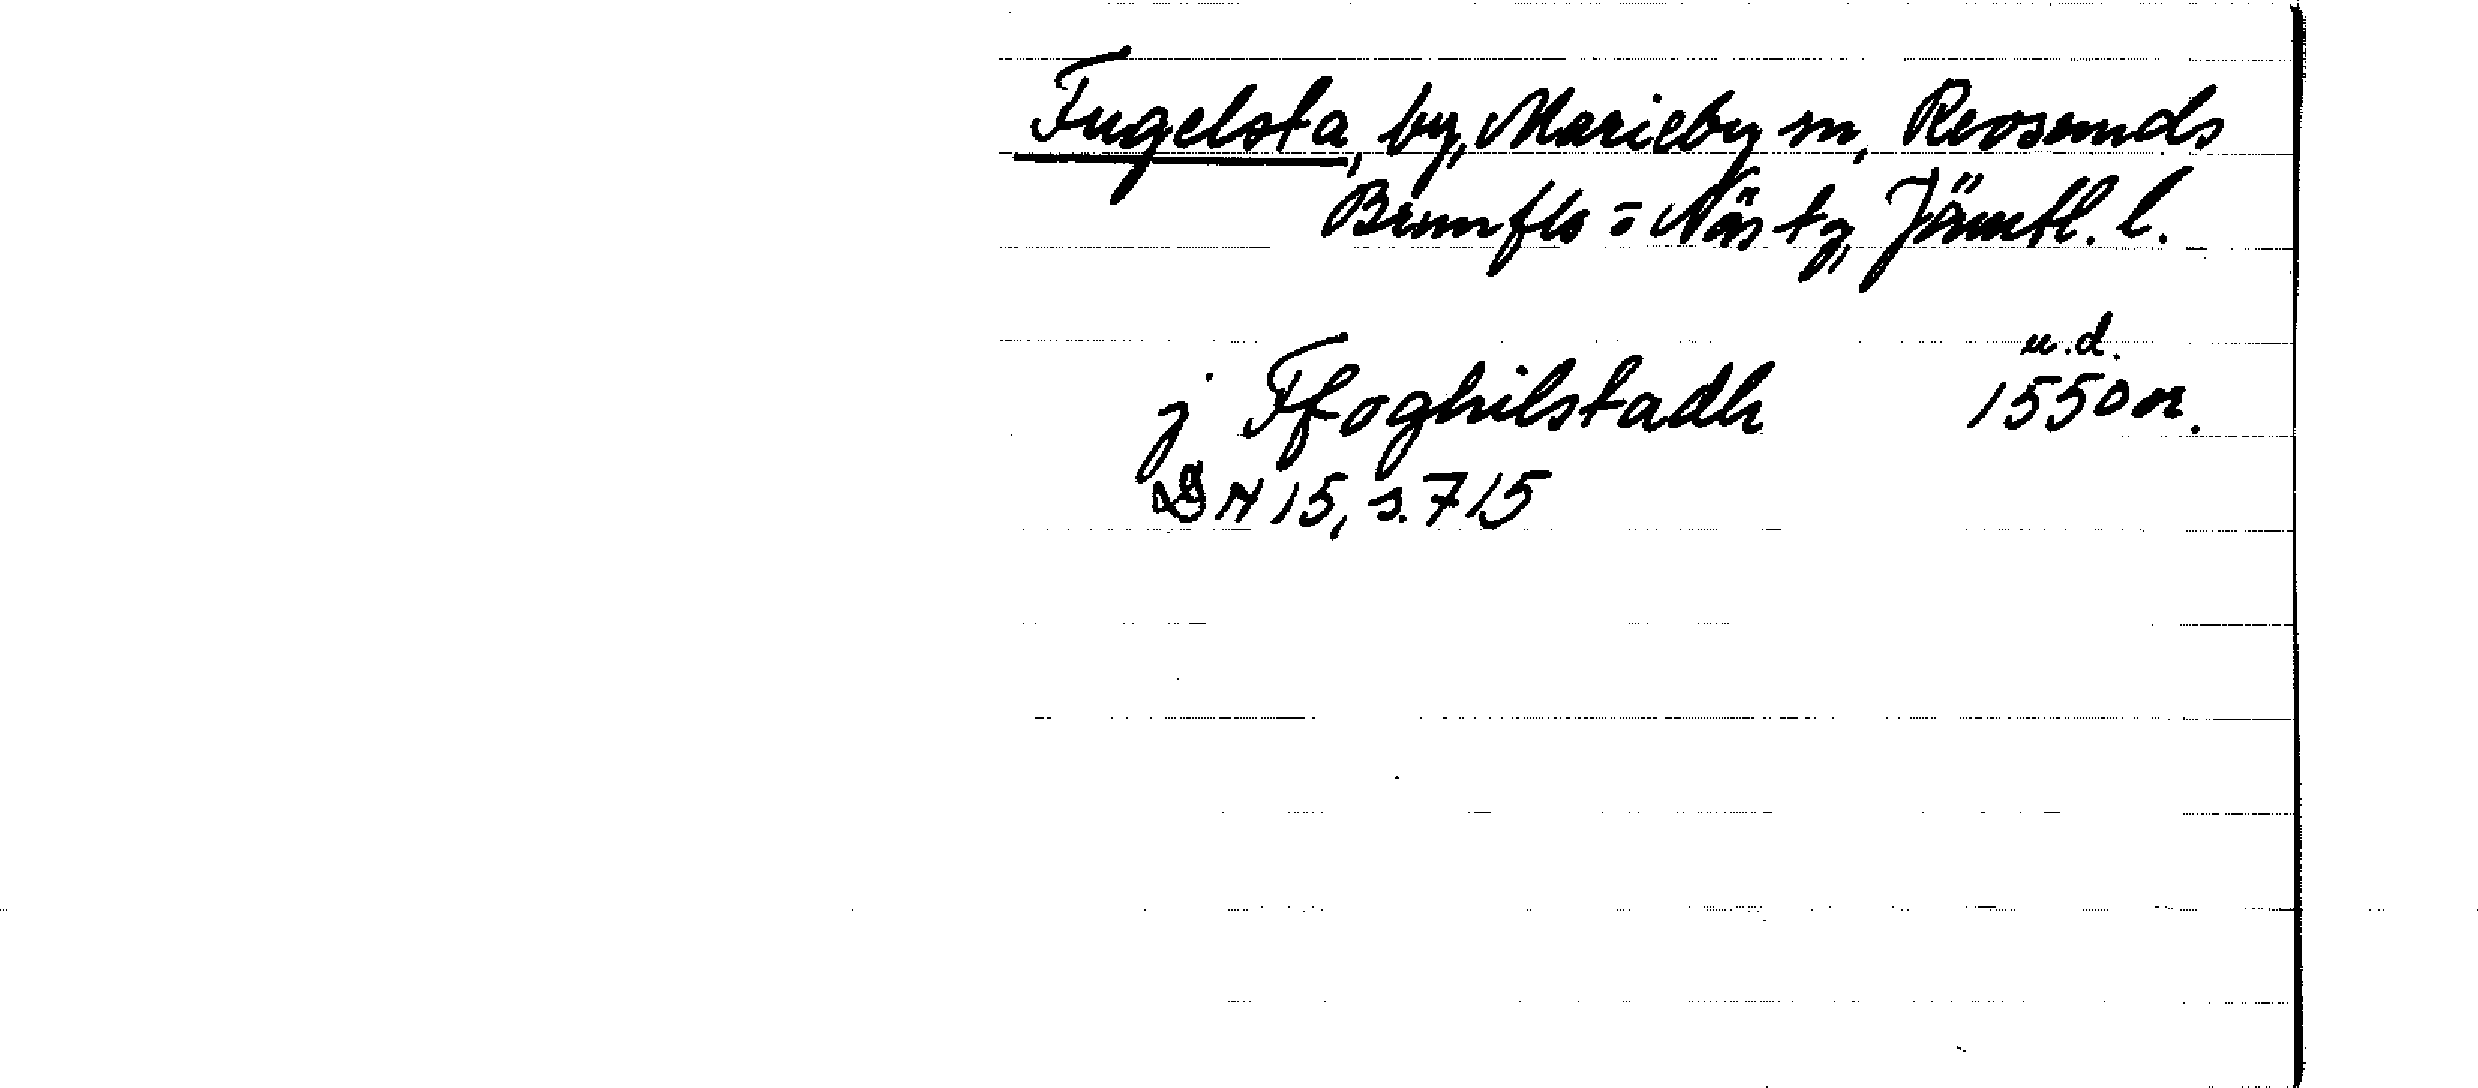 Fugelsta, by, Marieby sn, Revsunds
Brunflo o Näs tg, Jämtl. l.
u.d.
j Ffoghilstadh 1550 or.
DN 15, s. 715